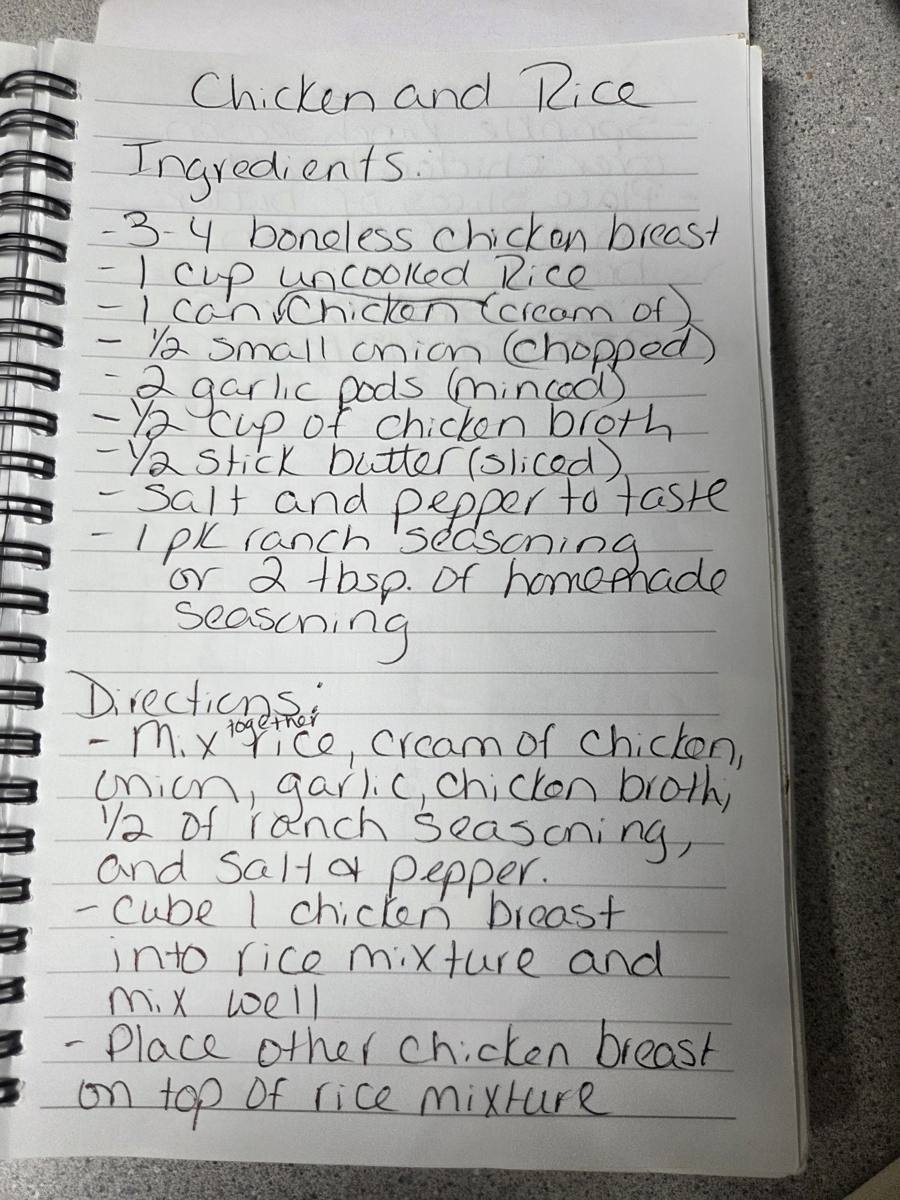 Chicken and Rice
Ingredients:
- 3-4 boneless chicken breast
- 1 cup uncooked Rice
- 1 can Chicken (cream of)
- 1/2 small onion (chopped)
- 2 garlic pods (minced)
- 1/2 cup of chicken broth
- 1/2 stick butter (sliced)
- Salt and pepper to taste
- 1 pk ranch seasoning
or 2 tbsp. of homemade
seasoning
Directions:
- Mix together rice, cream of chicken,
onion, garlic, chicken broth,
1/2 of ranch seasoning,
and salt & pepper.
- Cube 1 chicken breast
into rice mixture and
mix well
- Place other chicken breast
on top of rice mixture